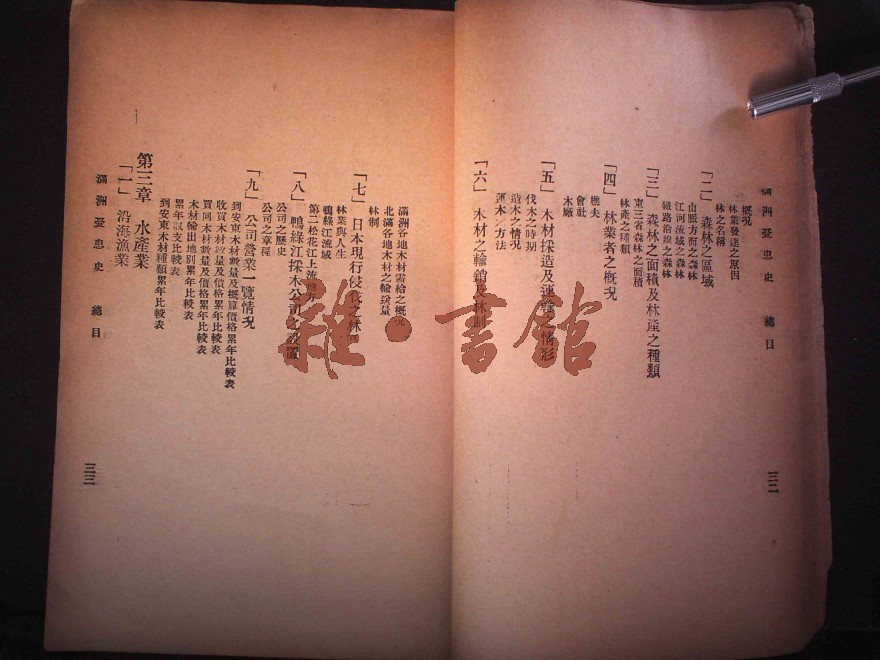 滿洲憂患史 總目
概況
林業發達之原因
林之名稱
「二」 森林之區域
山脈方面之森林
江河流域之森林
鐵路沿線之森林
「三」 森林之面積及林產之種類
東三省森林之面積
林產之種類
「四」 林業者之概況
樵夫
會社
木廠
「五」 木材採造及運輸之情形
伐木之時期
造木之情況
運木ノ方法
「六」 木材之輸銷及林制
三二
滿洲各地木材需給之概況
北滿各地木材之輸送量
林制
「七」 日本現行侵伐之林
林業與人生
鴨綠江流域
第二松花江上流地方
「八」 鴨綠江採木公司之設置
公司之歷史
公司之章程
「九」 公司營業一覽情况
到安東木材數量及概算價格累年比較表
收買木材數量及價格累年比較表
賣同木材數量及價格累年比較表
木材輸出地別累年比較表
累年收支比較表
到安東木材種類累年比較表
第三章 水產業
「一」 沿海漁業
滿洲憂患史 總目
三三
雜·書館